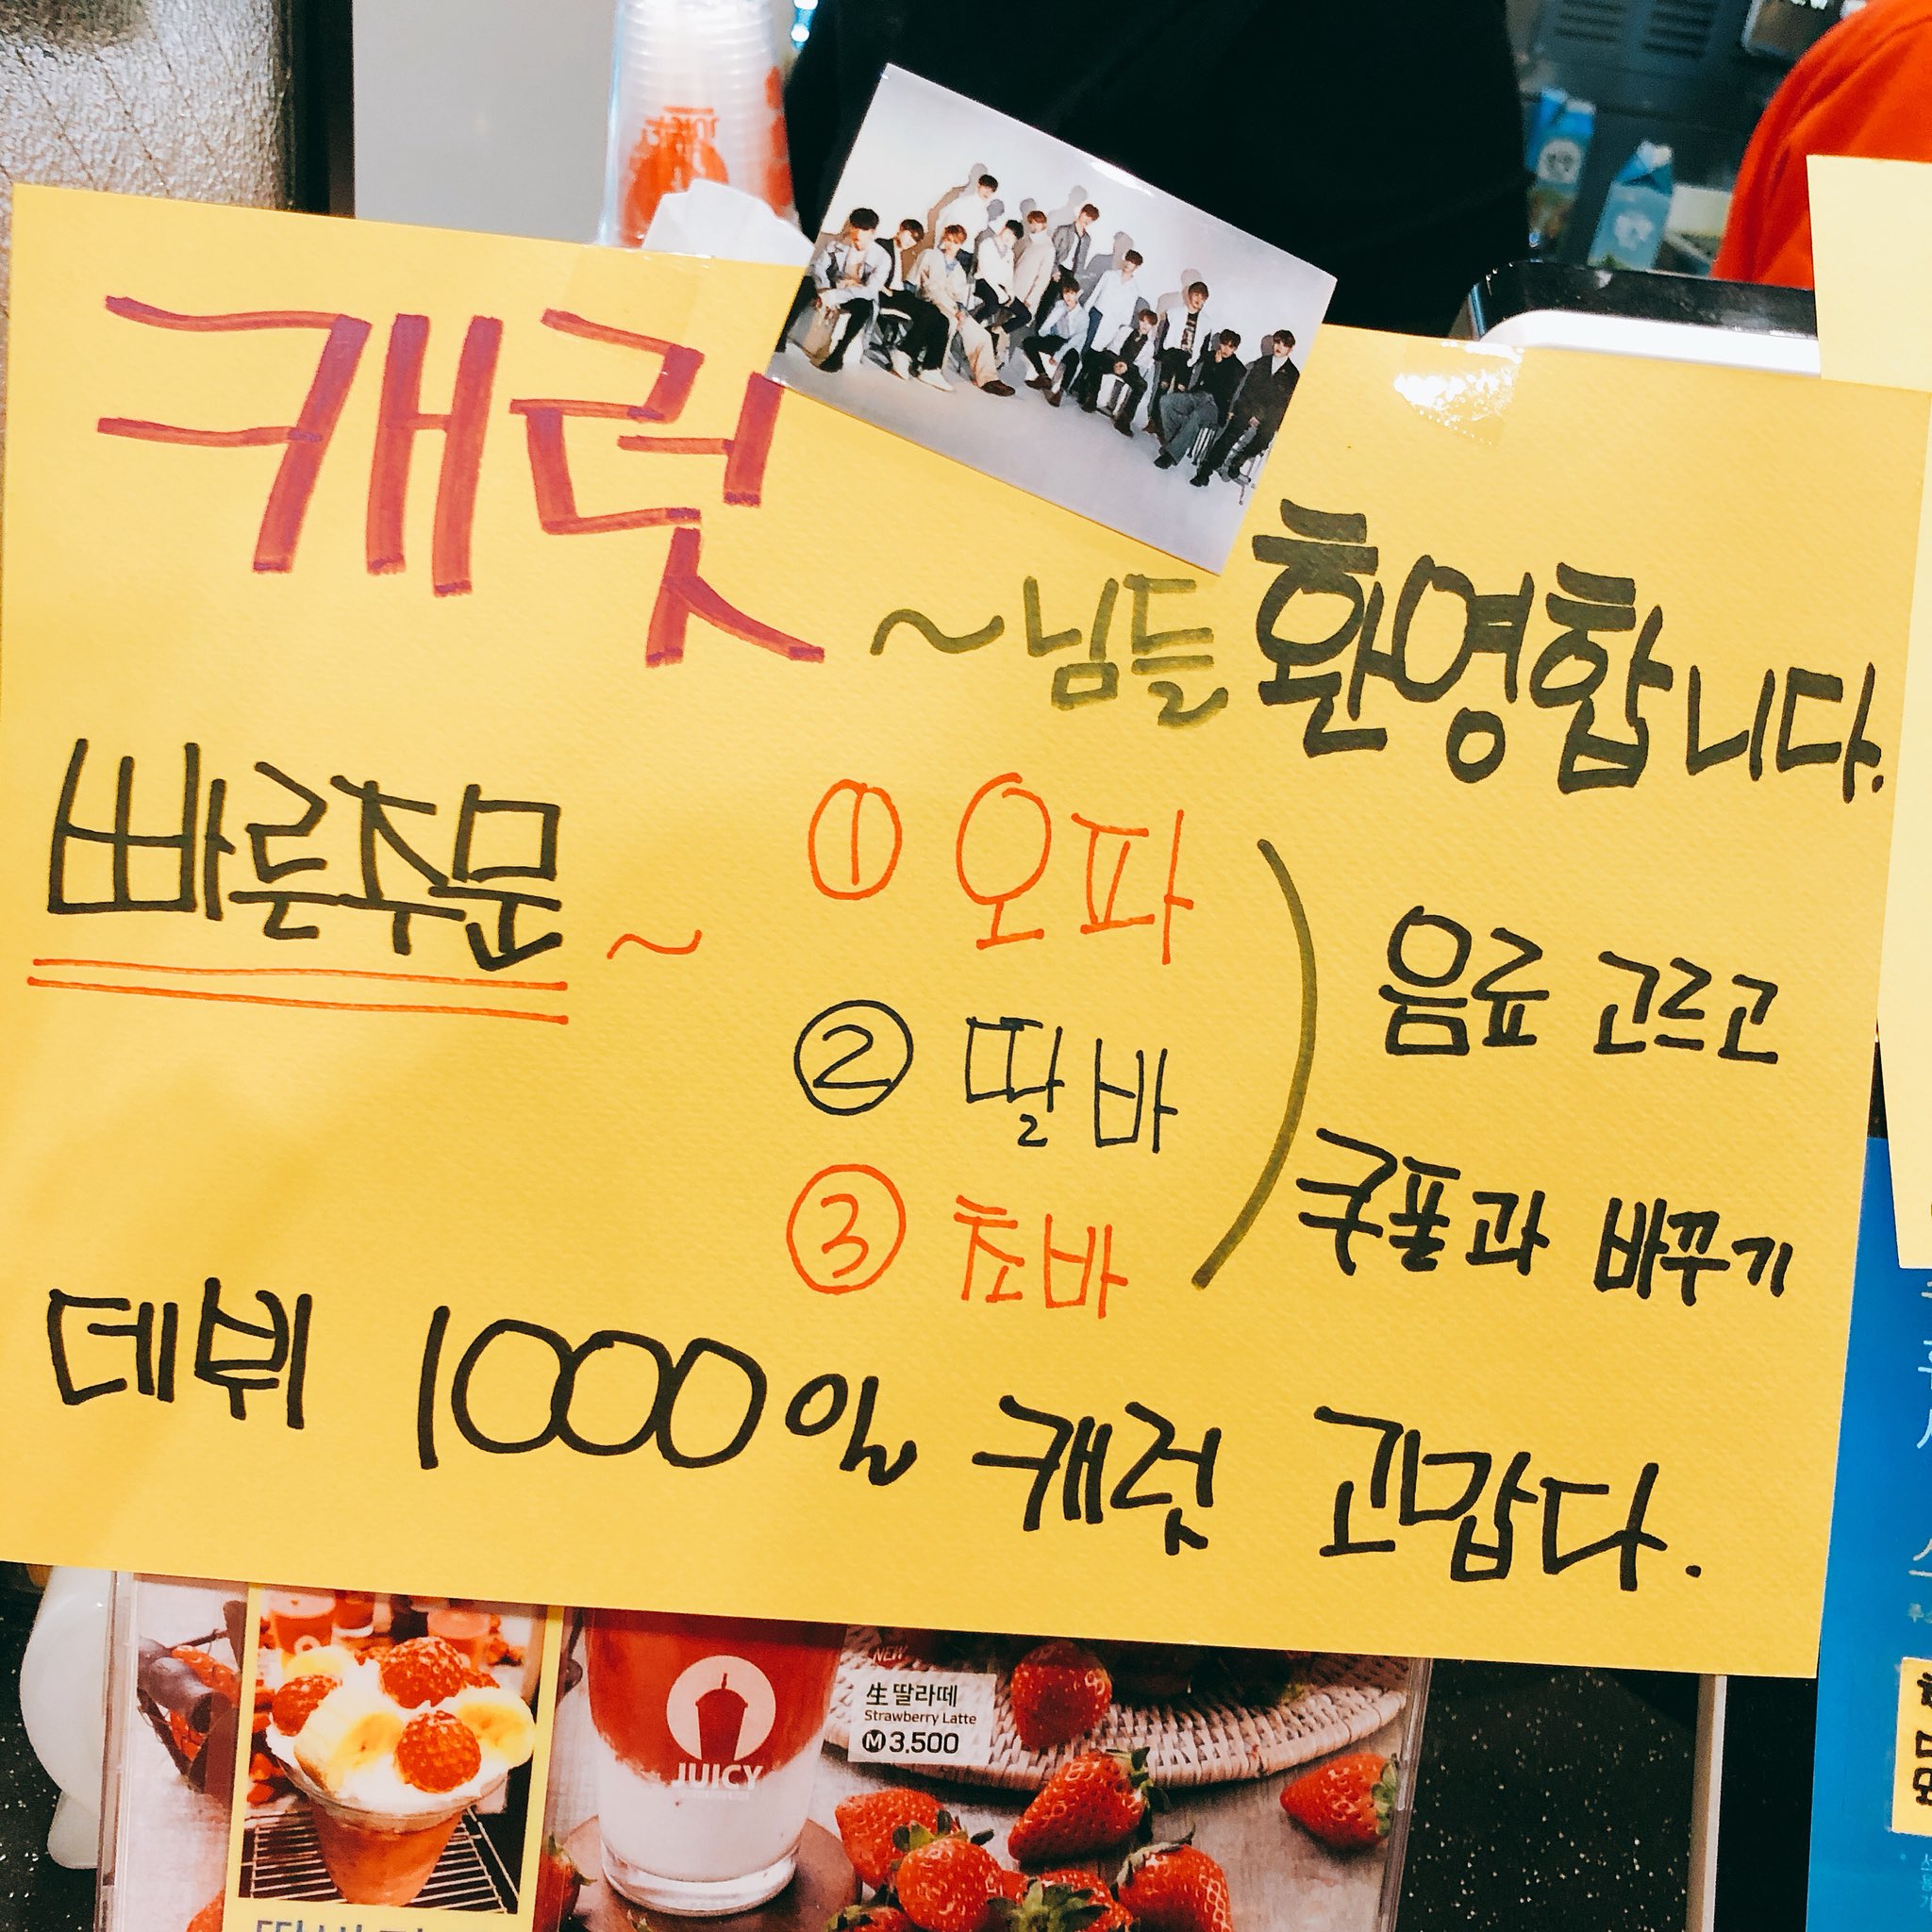 캐럿 ~님들 환영합니다.
빠른주문 ~
① 오파
② 딸바
③ 초바
음료 고르고
쿠폰과 바꾸기
데뷔 1000일 캐럿 고맙다.
NEW
生딸라떼
Strawberry Latte
Ⓜ3,500
JUICY